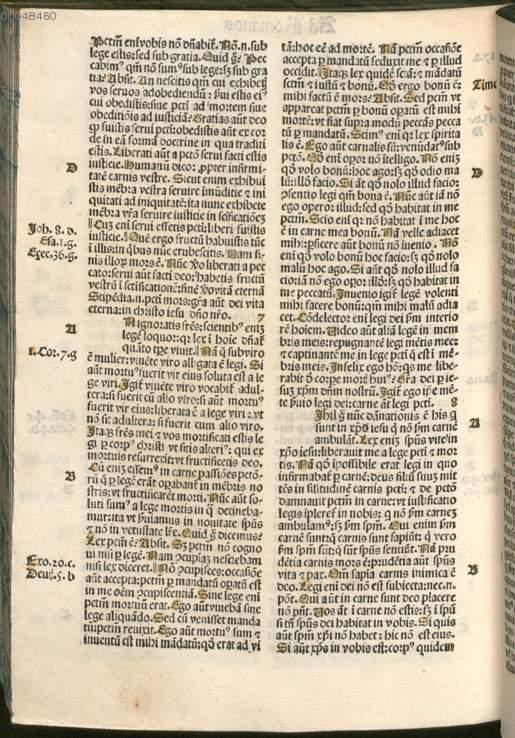 00048460
Ad Romanos
Petm̄ em̄ vobis nō dñabit̉. Nō .n. sub
lege estis: sed sub gratia. Quid g̉? Pec
cabim⁹ qm̄ nō sum⁹ sub lege: sʒ sub gra
tia? Absit. An nescitis qm̄ cui exhibetʒ
vos seruos ad obediendū: serui estis ei⁹
cui obeditis: siue pcti ad mortem siue
obeditiōis ad iusticiā? Gratias aūt deo
ꝙ fuistis serui pcti: obedistis aūt ex cor
de in eā formā doctrine in qua traditi
estis. Liberati aūt a pctō serui facti estis
iusticie. Humanū dico: ꝓpter infirmi-
tatē carnis vestre. Sicut enim exhibui
stis mēbra vestra seruire immūditie ⁊ ini
quitati ad iniquitatē: ita nunc exhibete
mēbra vr̄a seruire iusticie in sctificatiōeʒ
Cuʒ em̄ serui essetis pcti: liberi fuistis
iusticie. Que ergo fructū habuistis tūc
ī illis: in qbus nūc erubescitis. Nam fi-
nis illoꝝ mors ē. Nūc vo liberati a pec
cato: serui aūt facti deo: habetis fructū
vestrū ī sctificationē: finē vo vitā eternā
Stipēdia .n. pcti mors: grā aūt dei vita
eterna: in christo iesu dño nr̄o. 7
An ignoratis frēs: scientib⁹ em̄
legē loquor: qꝛ lex ī hoīe dñat̉
quāto tꝑe viuit? Nā q̄ sub viro
ē mulier: viuēte viro alligata ē legi. Si
aūt mortu⁹ fuerit vir eius soluta est a le
ge viri. Igit̉ viuēte viro vocabit̉ adul-
tera: si fuerit cū alio viro: si aūt mortu⁹
fuerit vir eius: liberata ē a lege viri: vt
nō sit adultera: si fuerit cum alio viro.
Itaqʒ frēs mei ⁊ vos mortificati estis le
gi ꝑ corp⁹ christi vt sitis alteri⁹: qui ex
mortuis resurrexit: vt fructificetis deo.
Cū em̄ essem⁹ in carne passiōes pctō-
rū q̄ ꝑ legē erāt oꝑabant̉ in mēbris no
stris: vt fructificarēt morti. Nūc aūt so-
luti sum⁹ a lege mortis in q̄ detineba-
mur: ita vt ẜuiamus in nouitate spūs
⁊ nō in vetustate lr̄e. Quid g̉ dicemus?
Lex pctm̄ ē? Absit. Sʒ pctm̄ nō cogno
ui nisi ꝑ legē. Nam ꝯcupiaʒ nesciebam
nisi lex diceret. Nō ꝯcupisces: occasiōe
aūt accepta: pctm̄ ꝑ mandatū oꝑatū est
in me oēm ꝯcupiscentiā. Sine lege em̄
pctm̄ mortuū erat. Ego aūt viuebā sine
lege aliquādo. Sed cū venisset manda
tū: pctm̄ reuixit. Ego aūt mortu⁹ sum ⁊
inuentū est mihi mādatū: qḋ erat ad vi
tā: hoc eē ad mortē. Nā pctm̄ occasiōe
accepta ꝑ mandatū seduxit me ⁊ ꝑ illud
occidit. Itaqʒ lex quidē sctā: ⁊ mādatū
sctm̄ ⁊ iustū ⁊ bonū. Qḋ ergo bonū ē:
mihi factū ē mors? Absit. Sed pctm̄ vt
appareat pctm̄ ꝑ bonū oꝑatū est mihi
mortē: vt fiat supra modū peccās pecca
tū ꝑ mandatū. Scim⁹ em̄ qꝛ lex spirita
lis ē. Ego aūt carnalis sū: venūdat⁹ sub
pctō. Qḋ em̄ oꝑor nō ītelligo. Nō eniʒ
qḋ volo bonū: hoc ago: sʒ qḋ odio ma
lū: illḋ facio. Si āt qḋ nolo illud facio:
ꝯsentio legi qm̄ bona ē. Nūc aūt iā nō
ego operor illud: sed qḋ habitat in me
pctm̄. Scio em̄ qꝛ nō habitat ī me hoc
ē in carne mea bonū. Nā velle adiacet
mihi: ꝑficere aūt bonū nō inuenio. Nō
em̄ qḋ volo bonū hoc facio: sʒ qḋ nolo
malū hoc ago. Si aūt qḋ nolo illud fa
cio: iā nō ego oꝑor illḋ: sʒ qḋ habitat in
me peccatū. Inuenio igit̉ legē volenti
mihi facere bonū: qm̄ mihi malū adia
cet. Cōdelector em̄ legi dei ẜm interio
rē hoiem. Video aūt aliā legē in mem
bris meis: repugnantē legi mētis mee:
⁊ captiuantē me in lege pcti q̄ est ī mē-
bris meis. Infelix ego hō: qs me libe-
rabit d̄ corꝑe mort hui⁹? Grā dei ꝑ ie-
suʒ xp̄m dnm̄ nostrū. Igit̉ ego ip̄e mē-
te ẜuio legi dei: carne āt legi pcti. 8
Nihil g̉ nūc dānationis ē his q̄
sunt in xp̄o iesu q nō ẜm carnē
ambulāt. Lex eniʒ spūs vite in
xp̄o iesu: liberauit me a lege pcti ⁊ mor
tis. Nā qḋ īpossibile erat legi in quo
infirmabat̉ ꝑ carnē: deus filiū suuʒ mit
tēs in silitudinē carnis pcti: ⁊ de pctō
damnauit pctm̄ in carne: vt iustificatio
legis īpleret̉ in nobis: q nō ẜm carneʒ
ambulam⁹: sʒ ẜm spm̄. Qui enim ẜm
carnē sunt: q̄ carnis sunt sapiūt: q vero
ẜm spm̄ sūt: q̄ sūt spūs sentiūt. Nā pru
dētia carnis mors ē: prudētia aūt spūs
vita ⁊ pax. Qm̄ sapia carnis inimica ē
deo. Legi em̄ dei nō est subiecta: nec .n.
pōt. Qui aūt in carne sunt deo placere
nō pn̄t. Vos āt ī carne nō estis: sʒ ī spū
si tn̄ spūs dei habitat in vobis. Si quis
aūt spm̄ xp̄i nō habet: hic nō est eius.
Si aūt xp̄s in vobis est: corp⁹ quidem
D
Joh. 8. d.
Esa. 1. g.
Ezec. 36. g.
A
1. Cor. 7. g
B
Exo. 20. c.
Deut̉. 5. b
D
A
B